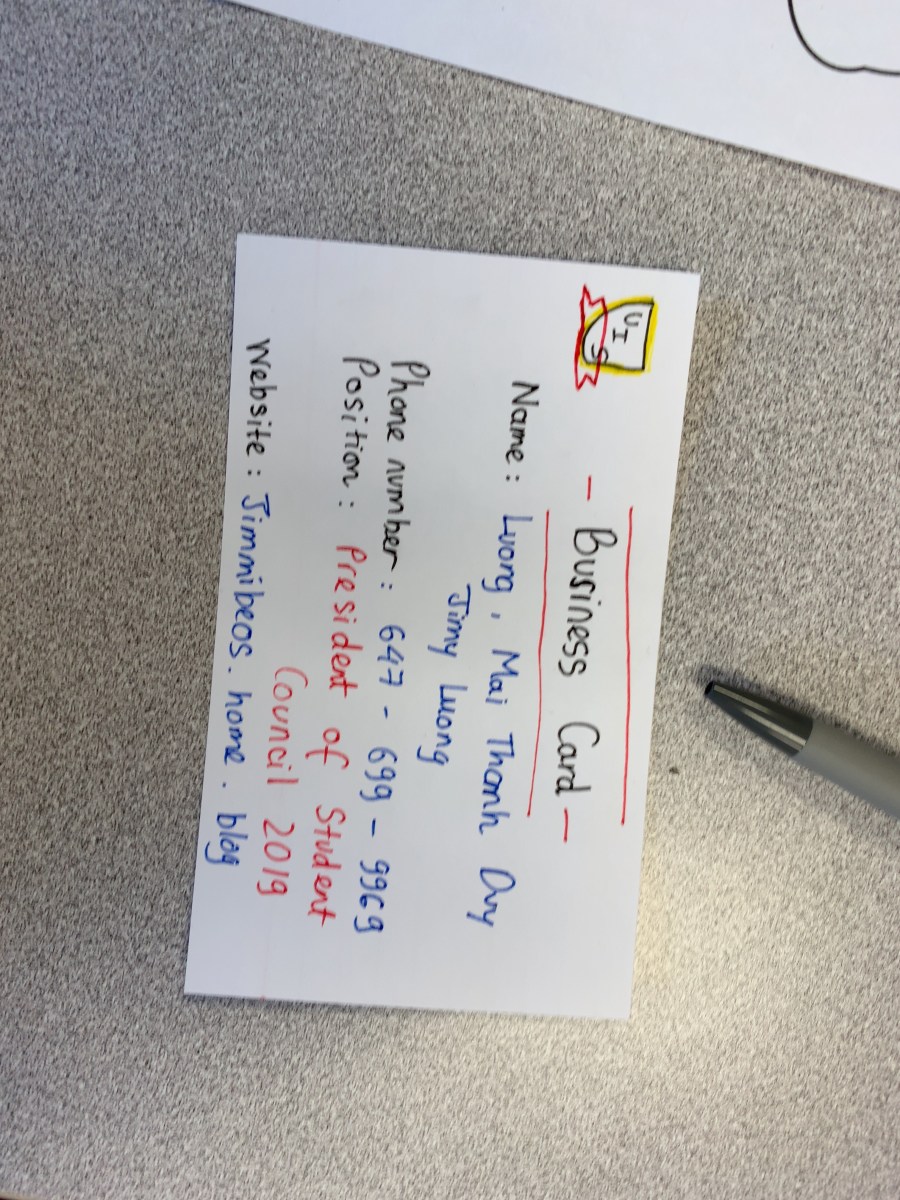 UI
S
- Business Card -
Name: Luong, Mai Thanh Duy
Jimy Luong
Phone number: 647-699-9969
Position: President of Student
Council 2019
Website: Jimmibeos.home.blog